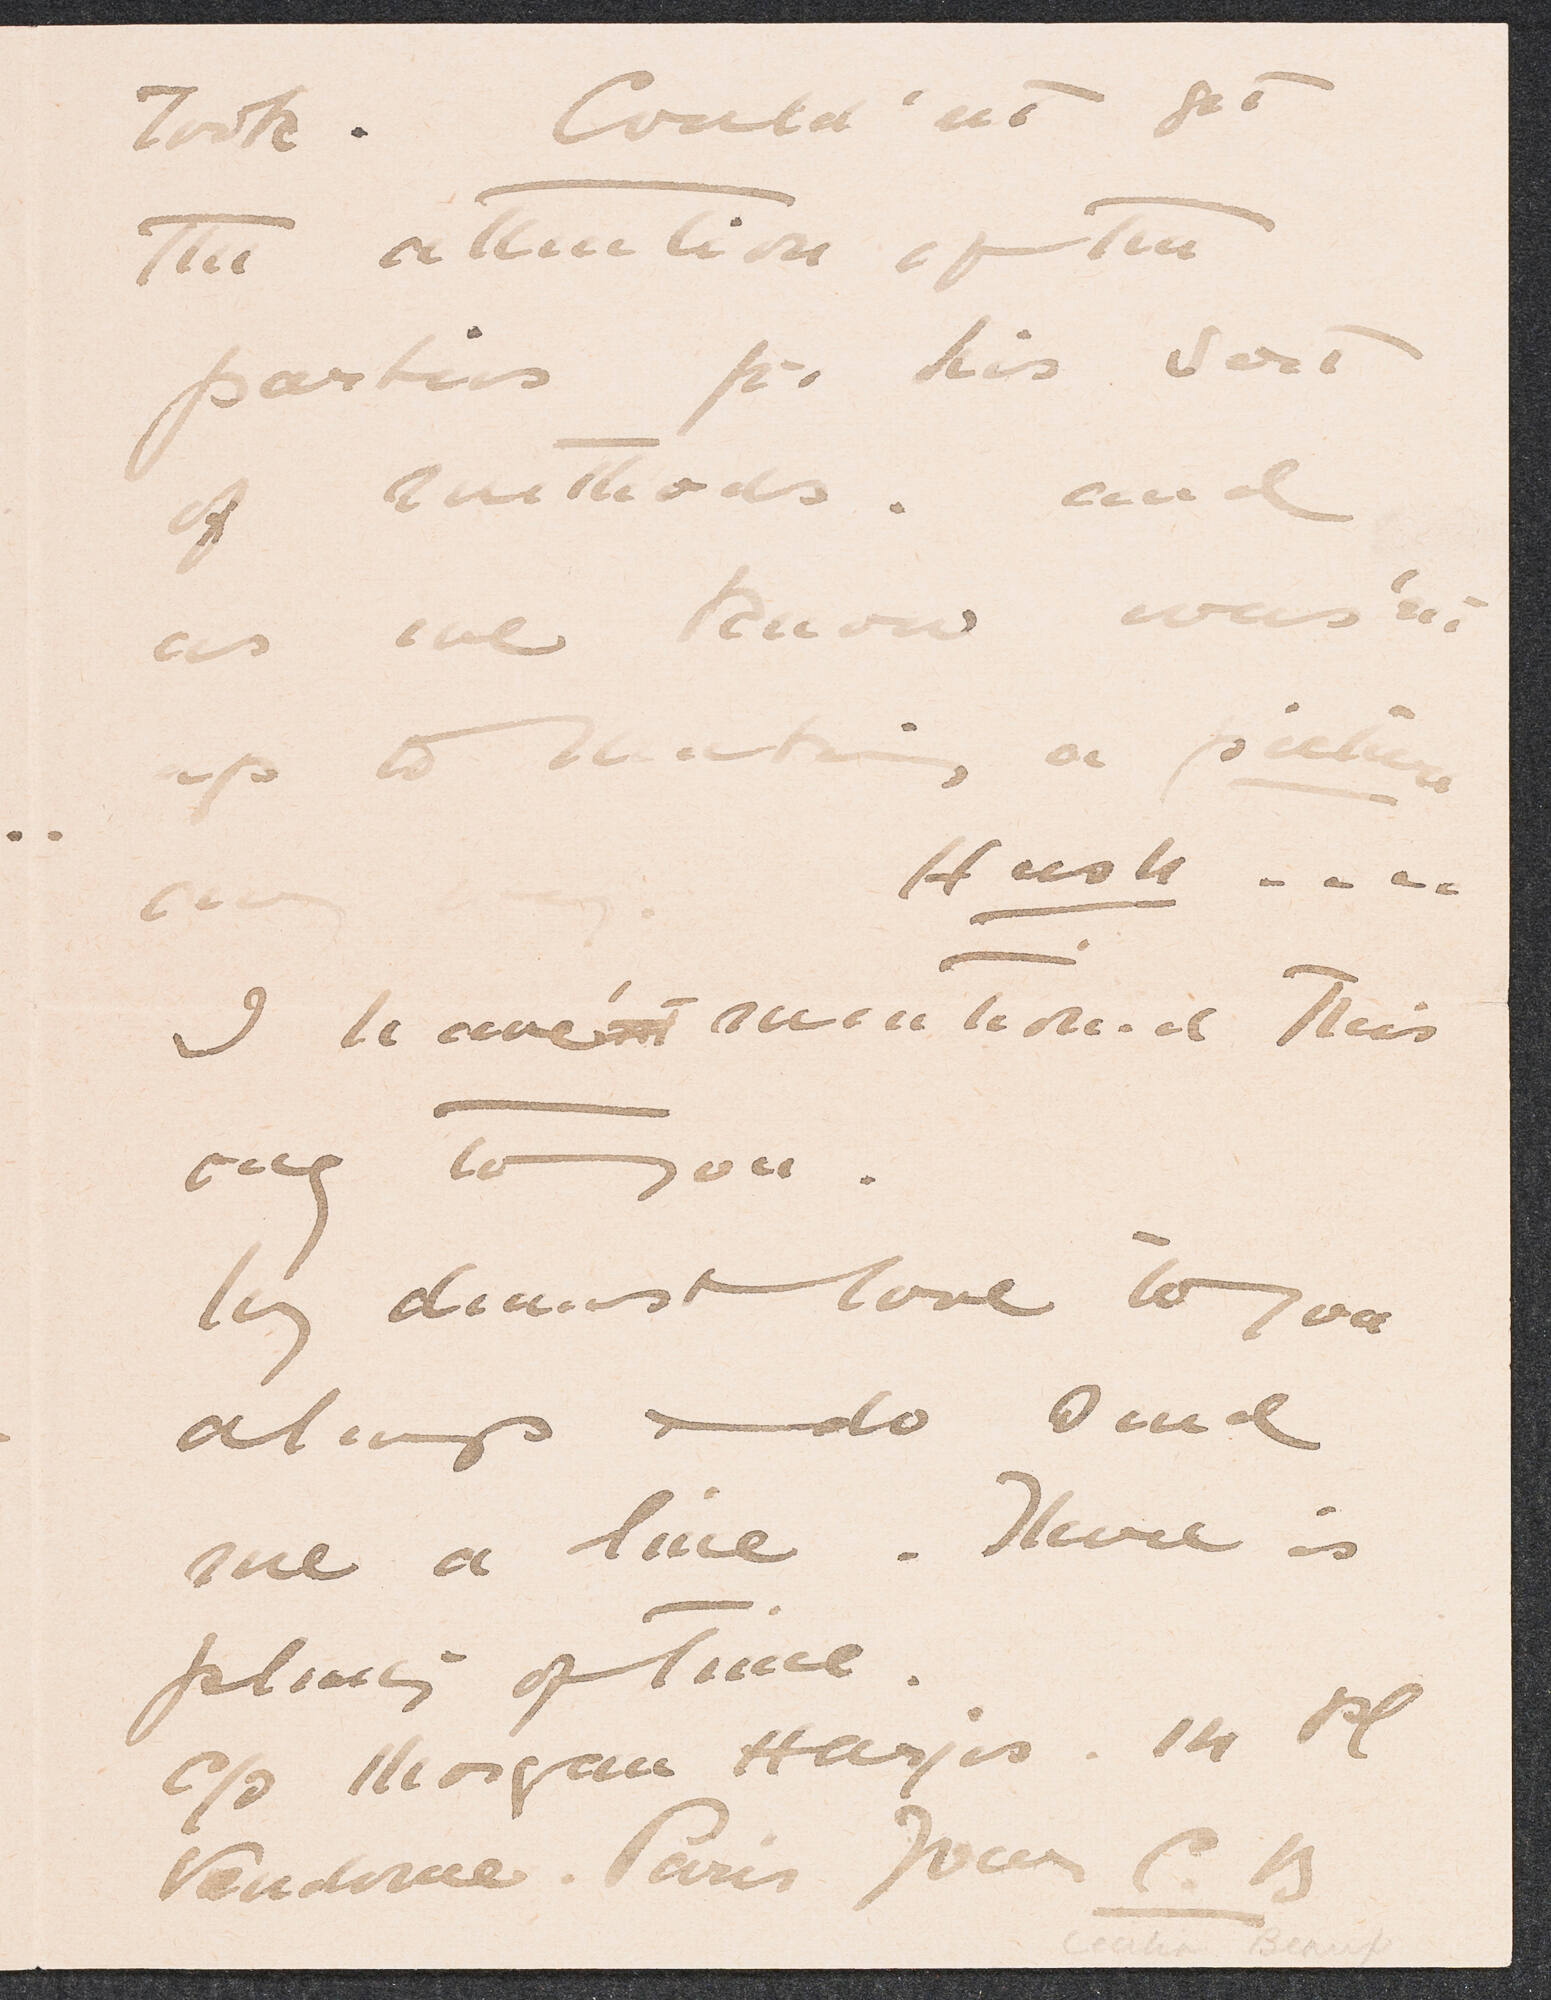 Took. Could'nt get
the attention of the
parties for his sort
of methods. and
as we know was'nt
up to making a picture
any way. Hush ----
I have'nt mentioned this
ony to you.
My dearest love to you
always – do send
me a line. There is
plenty of time.
c/o Morgan Harjes. 14 Pl
Vendome. Paris Yours C. B
Cecilia Beaux